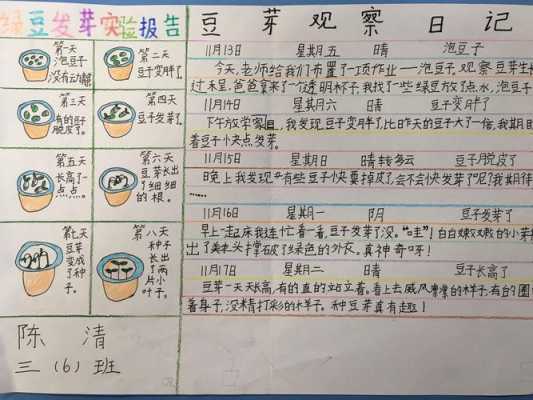 绿豆发芽实验报告
第一天
泡豆子
没有动静
第二天
豆子变胖了
第三天
有的豆子
脱皮了。
第四天
豆子发芽了
第五天
长高了一
点点。
第六天
豆芽长出
了细细
的根。
第七天
豆芽变成了种子。
第八天
种子长出了两片小叶子。
陈清
三(6)班
豆芽观察日记
11月13日 星期五 晴 泡豆子
今天,老师给我们布置了一项作业——泡豆子,观察豆芽生
过禾呈,爸爸拿来了一个透明杯子,我找了一些绿豆放了点水,泡豆子
11月14日 星期六 晴 豆子变胖了
下午放学家里,我发现豆子变胖了,比昨天的豆子大了一倍,我期目
着豆子快点发芽。
11月15日 星期日 晴转多云 豆子脱皮了
晚上我发现有些豆子快要掉皮了,会不会快发芽了呢?我期待
11月16日 星期一 阴 豆子发芽了
早上一起床我连忙看一看,豆子发芽了没。“哇”!白白嫩嫩的小芽
出了头撑破了绿色的外衣。真神奇呀!
11月17日 星期二 晴 豆子长高了
豆芽一天天长高,有的直的站立着。看上去威风凛凛的样子,有的圈
着身子,没精打彩的样子。种豆芽真有趣!